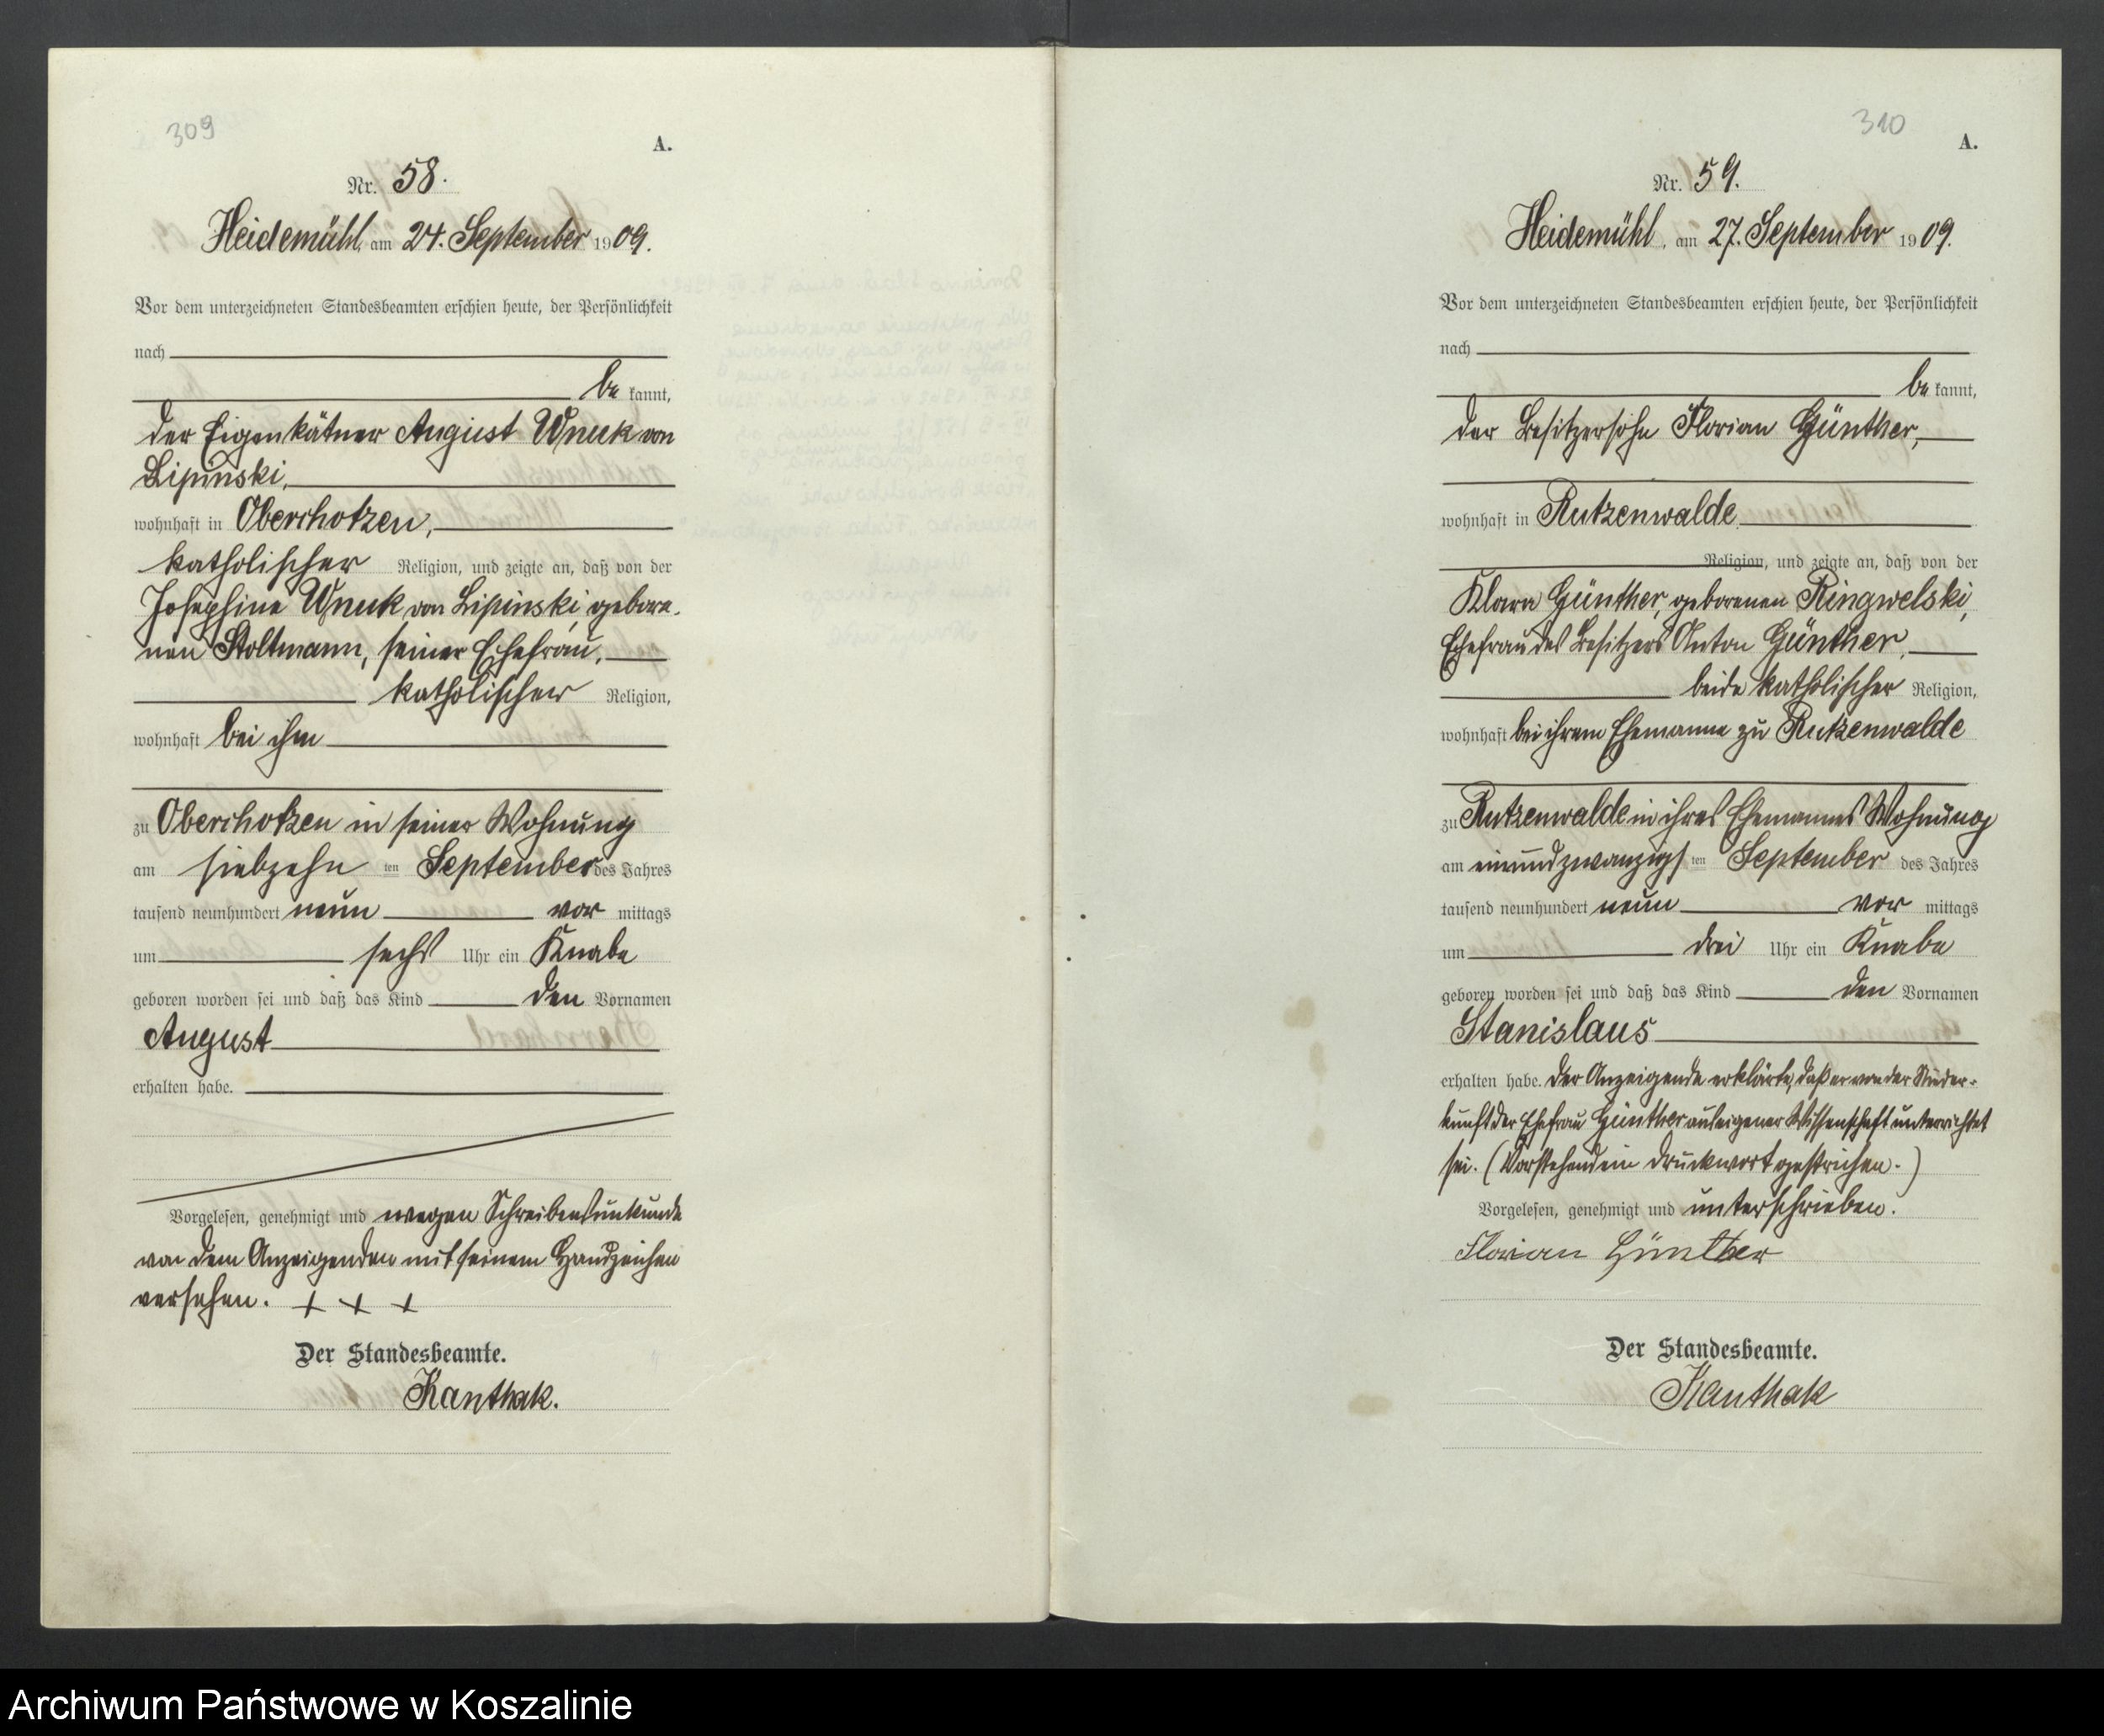 309
A.
Nr. 58.
Heidemühl, am 24. September 1909.
Vor dem unterzeichneten Standesbeamten erschien heute, der Persönlichkeit
nach
be kannt,
der Eigenkätner August Wnuk von
Lipinski,
wohnhaft in Oberchotzen,
katholischer Religion, und zeigte an, daß von der
Josephine Wnuk von Lipinski, gebore-
nen Stoltmann, seiner Ehefrau,
katholischer Religion,
wohnhaft bei ihm
zu Oberchotzen in seiner Wohnung
am siebzehn ten September des Jahres
tausend neunhundert neun vor mittags
um sechs Uhr ein Knabe
geboren worden sei und daß das Kind den Vornamen
August
erhalten habe.
Vorgelesen, genehmigt und wegen Schreibensunkunde
von dem Anzeigenden mit seinem Handzeichen
versehen. + + +
Der Standesbeamte.
Kanthak.
310
A.
Nr. 59.
Heidemühl, am 27. September 1909.
Vor dem unterzeichneten Standesbeamten erschien heute, der Persönlichkeit
nach
be kannt,
der Besitzersohn Florian Günther,
wohnhaft in Rutzenwalde
Religion, und zeigte an, daß von der
Klara Günther, geborenen Ringwelski,
Ehefrau des Besitzers Anton Günther,
beide katholischer Religion,
wohnhaft bei ihrem Ehemanne zu Rutzenwalde
zu Rutzenwalde in ihres Ehemannes Wohnung
am einundzwanzigs ten September des Jahres
tausend neunhundert neun vor mittags
um drei Uhr ein Knabe
geboren worden sei und daß das Kind den Vornamen
Stanislaus
erhalten habe. Der Anzeigende erklärte, daß er von der Nieder-
kunft der Ehefrau Günther aus eigener Wissenschaft unterrichtet
sei. (Vorstehend ein Druckwort gestrichen.)
Vorgelesen, genehmigt und unterschrieben.
Florian Günther
Der Standesbeamte.
Kanthak
Archiwum Państwowe w Koszalinie